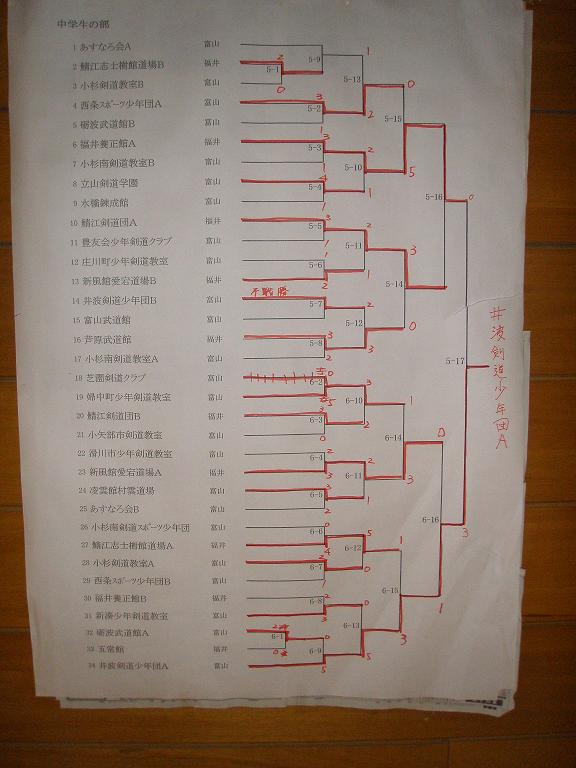 中学生の部
1 あすなろ会A 富山
2 鯖江志士樹館道場B 福井
3 小杉剣道教室B 富山
4 西条スポーツ少年団A 富山
5 砺波武道館B 富山
6 福井養正館A 福井
7 小杉南剣道教室B 富山
8 立山剣道学園 富山
9 水橋錬成館 富山
10 鯖江剣道団A 福井
11 豊友会少年剣道クラブ 富山
12 庄川町少年剣道教室 富山
13 新風館愛宕道場B 福井
14 井波剣道少年団B 富山
15 富山武道館 富山
16 芦原武道館 福井
17 小杉南剣道教室A 富山
18 芝園剣道クラブ 富山
19 婦中町少年剣道教室 富山
20 鯖江剣道団B 福井
21 小矢部市剣道教室 富山
22 滑川市少年剣道教室 富山
23 新風館愛宕道場A 福井
24 凌雲館村雲道場 富山
25 あすなろ会B 富山
26 小杉南剣道スポーツ少年団 富山
27 鯖江志士樹館道場A 福井
28 小杉剣道教室A 富山
29 西条スポーツ少年団B 富山
30 福井養正館B 福井
31 新湊少年剣道教室 富山
32 砺波武道館A 富山
33 五常館 福井
34 井波剣道少年団A 富山
不戦勝
5-1
5-2
5-3
5-4
5-5
5-6
5-7
5-8
6-2
6-3
6-4
6-5
6-6
6-7
6-8
6-1
6-9
5-9
5-10
5-11
5-12
6-10
6-11
6-12
6-13
5-13
5-14
6-14
6-15
5-15
5-16
6-16
5-17
井波剣道少年団A